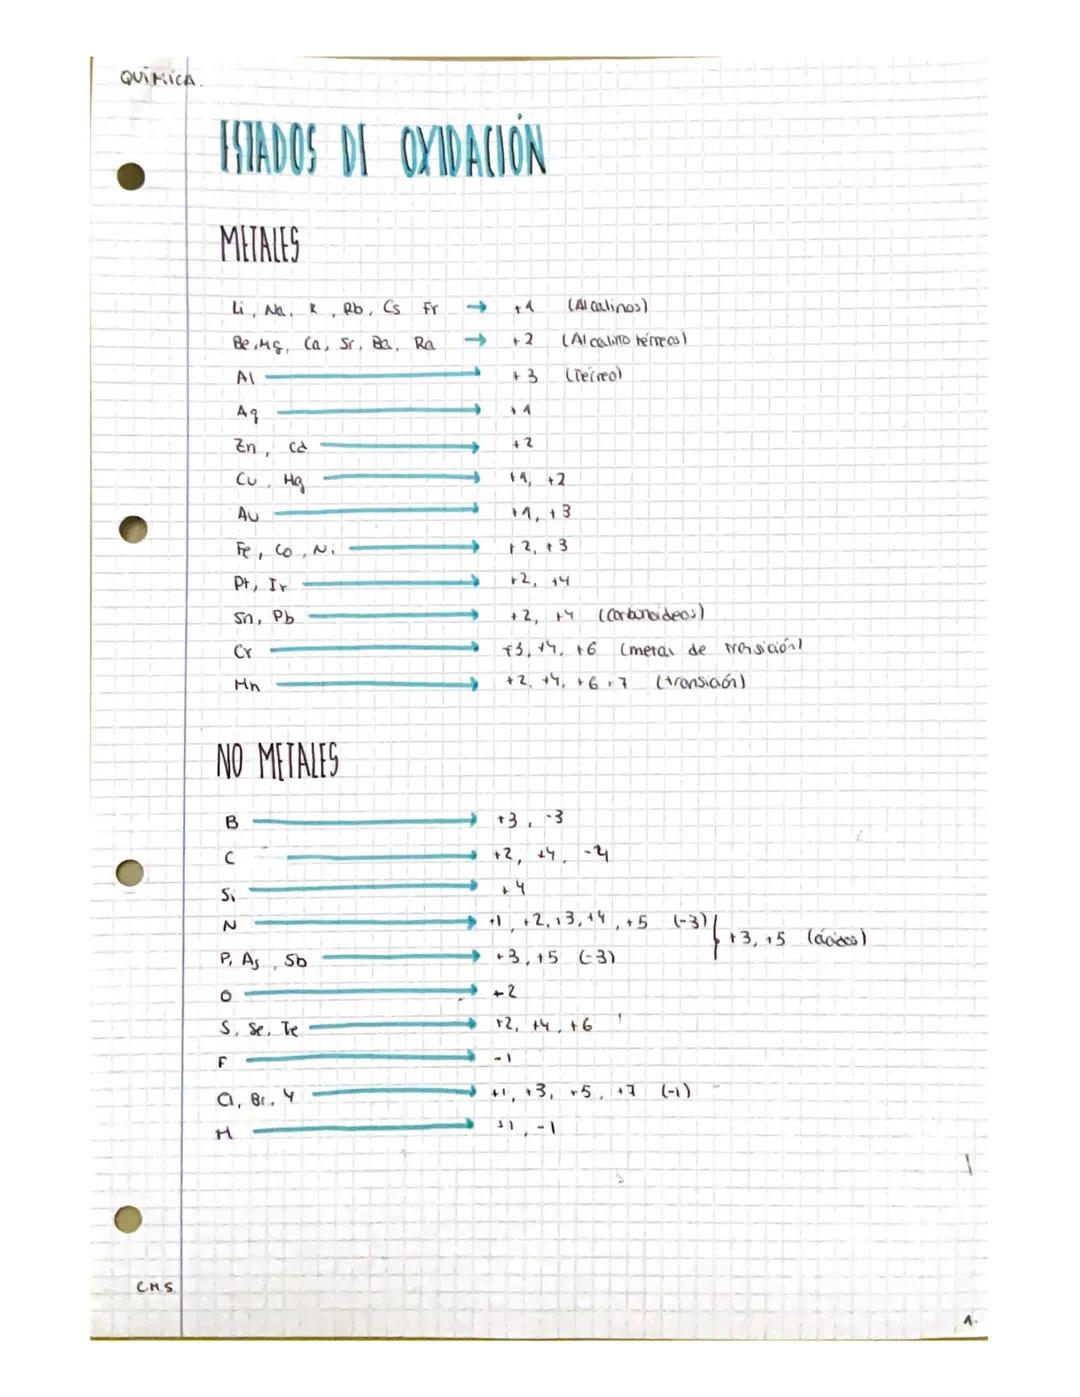 QUÍMICA.
ESTADOS DE OXIDACIÓN
METALES
Li, Na, K, Rb, Cs Fr → +1 (Alcalinos)
Be, Mg, Ca, Sr, Ba, Ra → +2 (Alcalino térreos)
Al → +3 (Térreo)
Ag → +1
Zn, Cd → +2
Cu, Hg → +1, +2
Au → +1, +3
Fe, Co, Ni → +2, +3
Pt, Ir → +2, +4
Sn, Pb → +2, +4 (carbonoideos)
Cr → +3, +4, +6 (metal de transición)
Mn → +2, +4, +6, 7 (transición)
NO METALES
B → +3, -3
C → +2, +4, -4
Si → +4
N → +1, +2, +3, +4, +5 (-3)
+3, +5 (ácidos)
P, As, Sb → +3, +5 (-3)
O → +2
S, Se, Te → +2, +4, +6
F → -1
Cl, Br, Y → +1, +3, +5, +7 (-1)
H → +1, -1
CMS
1.